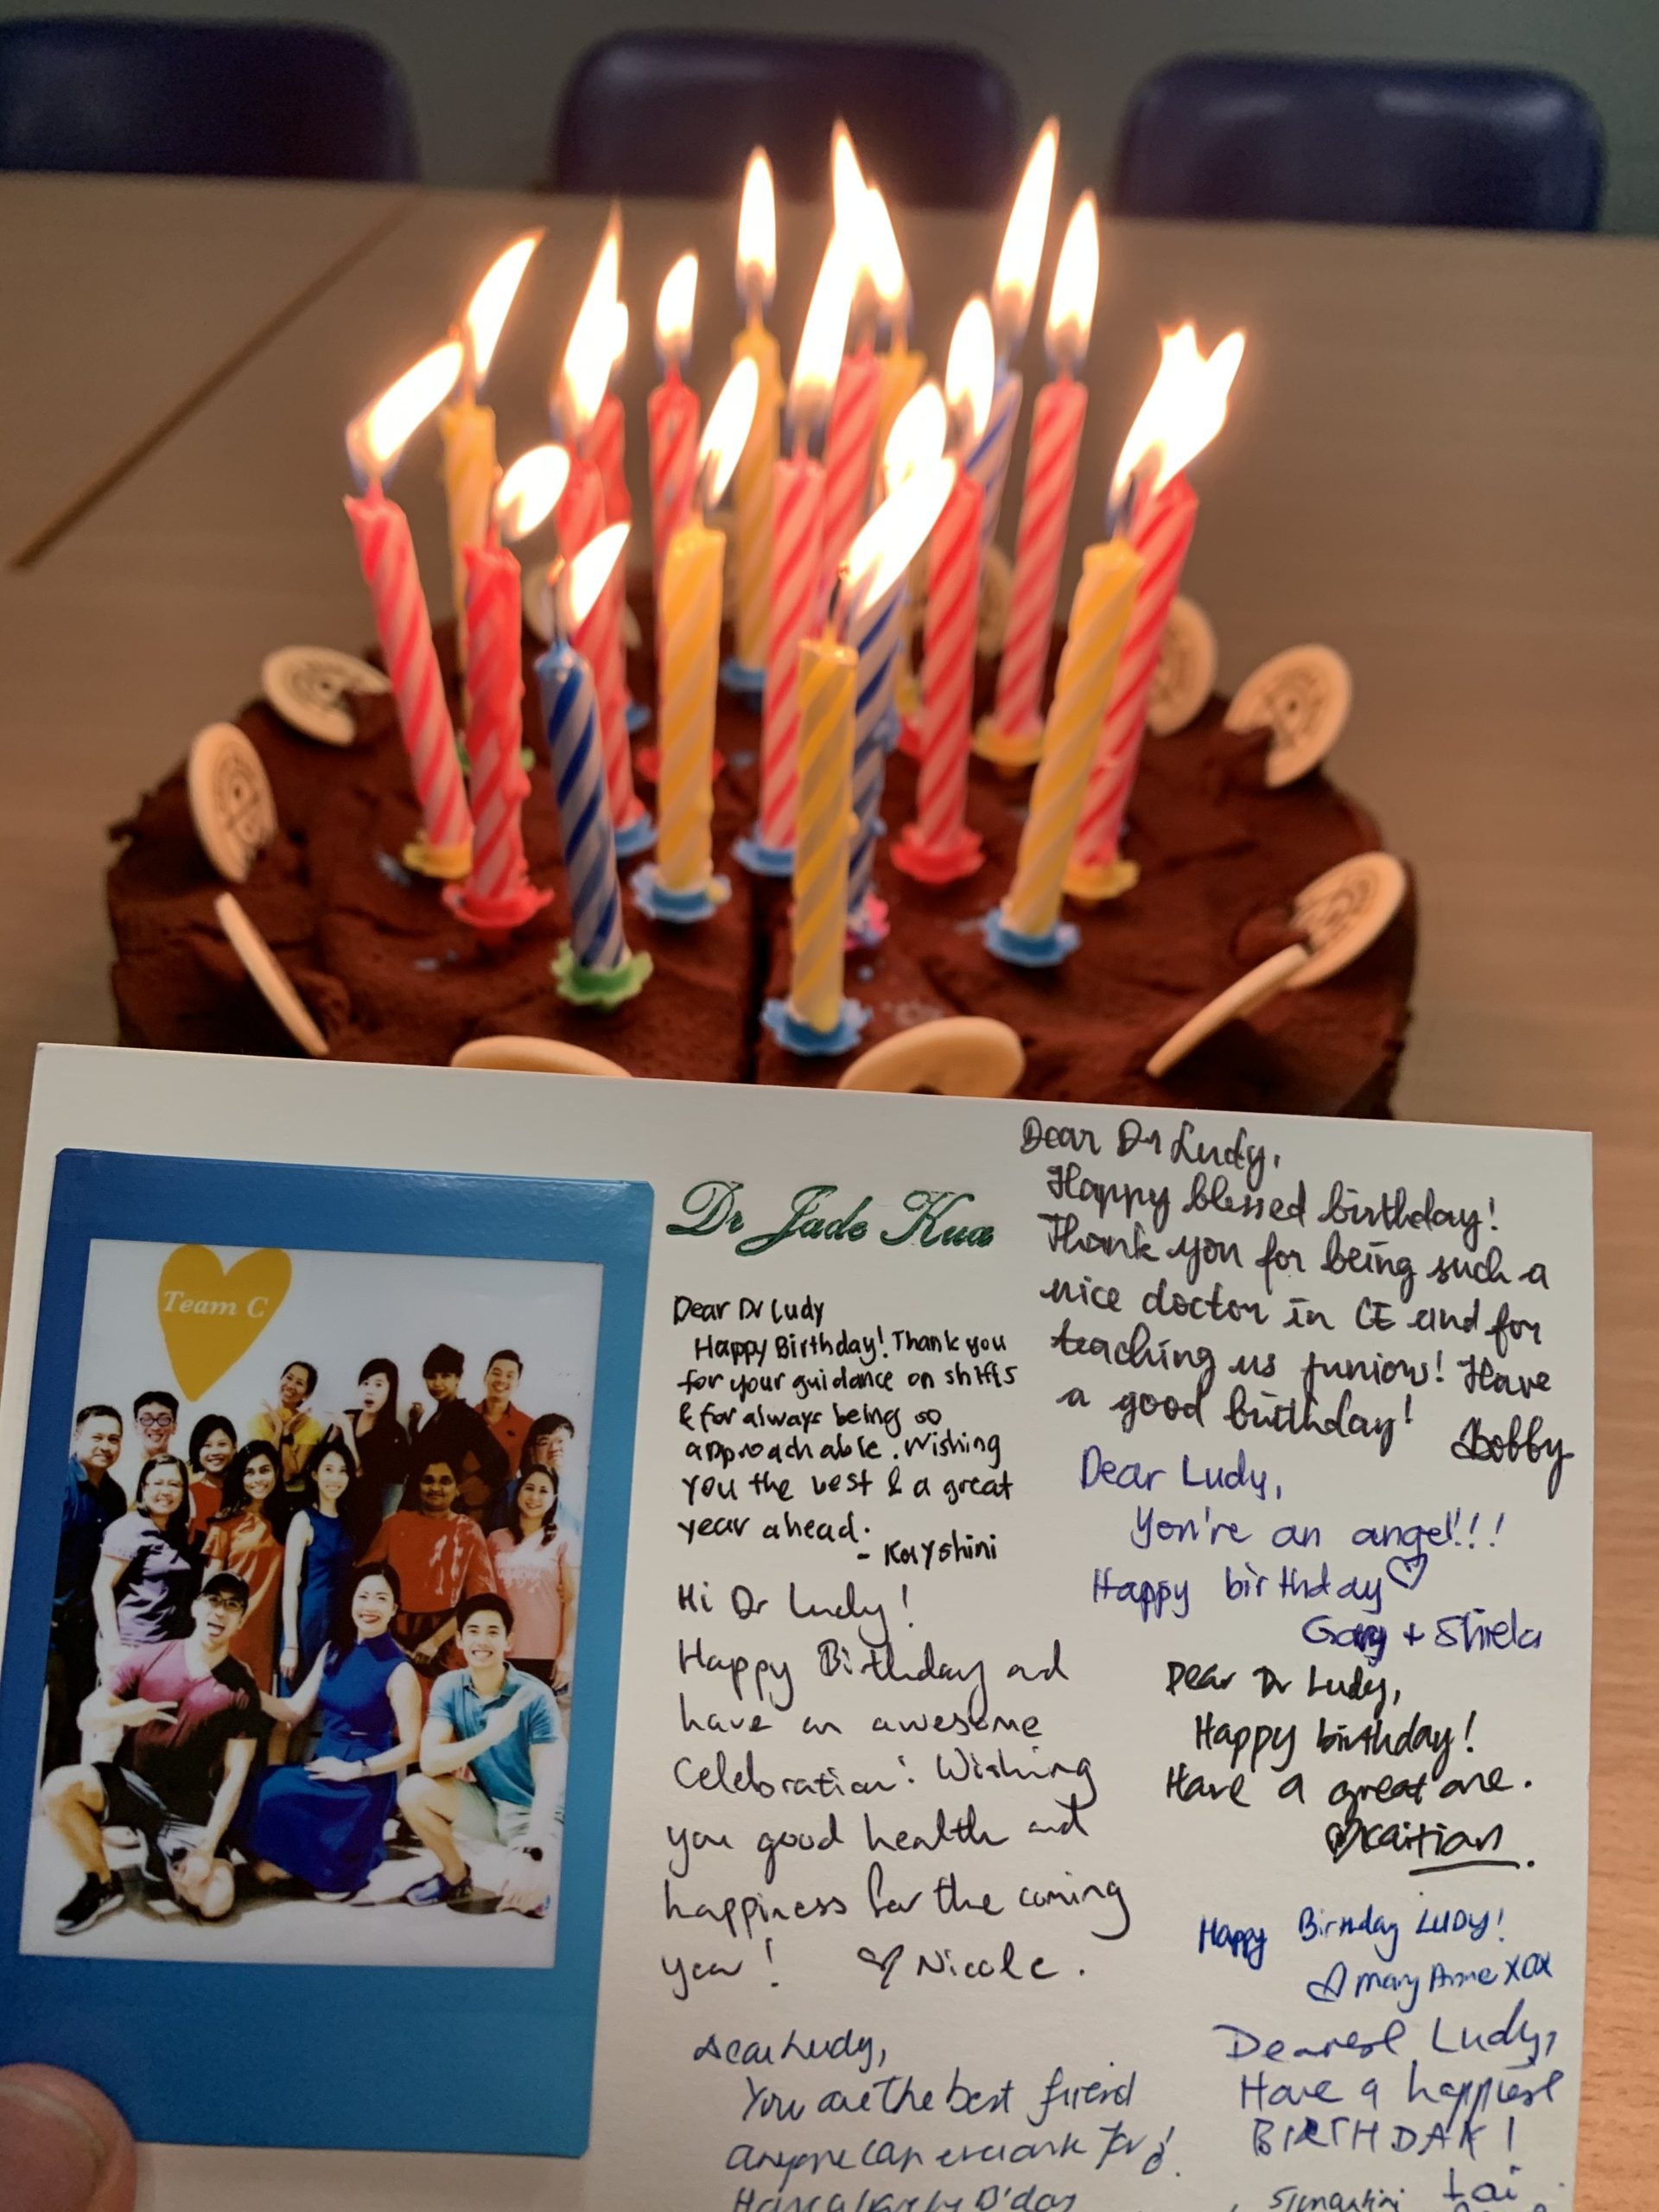 Team C
Dr Jade Kua
Dear Dr Ludy
Happy Birthday! Thank you
for your guidance on shifts
& for always being so
approachable. Wishing
you the best & a great
year ahead.
- Kayshini
Hi Dr Ludy!
Happy Birthday and
have an awesome
Celebration! Wishing
you good health and
happiness for the coming
year! ♡ Nicole.
Dear Ludy,
You are the best friend
anyone can ever ask for!
Have a lovely B'day
Dear Dr Ludy,
Happy blessed birthday!
Thank you for being such a
nice doctor in CE and for
teaching us juniors! Have
a good birthday!
Bobby
Dear Ludy,
You're an angel!!!
Happy birthday ♡
Gary + Shiela
Dear Dr Ludy,
Happy birthday!
Have a great one.
Kaitian.
Happy Birthday LUDY!
♡ Mary Anne XOX
Dearest Ludy,
Have a happiest
BIRTHDAY!